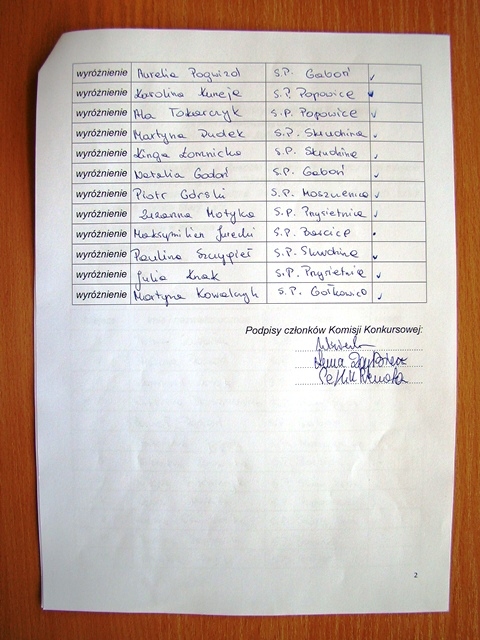 wyróżnienie Aurelia Pogwizd S.P. Gaboń
wyróżnienie Karolina Kuneja S.P. Popowice
wyróżnienie Ala Tokarczyk S.P. Popowice
wyróżnienie Martyna Dudek S.P. Skrudzina
wyróżnienie Kinga Łomnicka S.P. Skrudzina
wyróżnienie Natalia Godoń S.P. Gaboń
wyróżnienie Piotr Górski S.P. Moszczenica
wyróżnienie Zuzanna Motyka S.P. Przysietnica
wyróżnienie Maksymilian Jurecki S.P. Barcice
wyróżnienie Paulina Szczypień S.P. Skrudzina
wyróżnienie Julia Knak S.P. Przysietnica
wyróżnienie Martyna Kowalczyk S.P. Gołkowice
Podpisy członków Komisji Konkursowej:
2